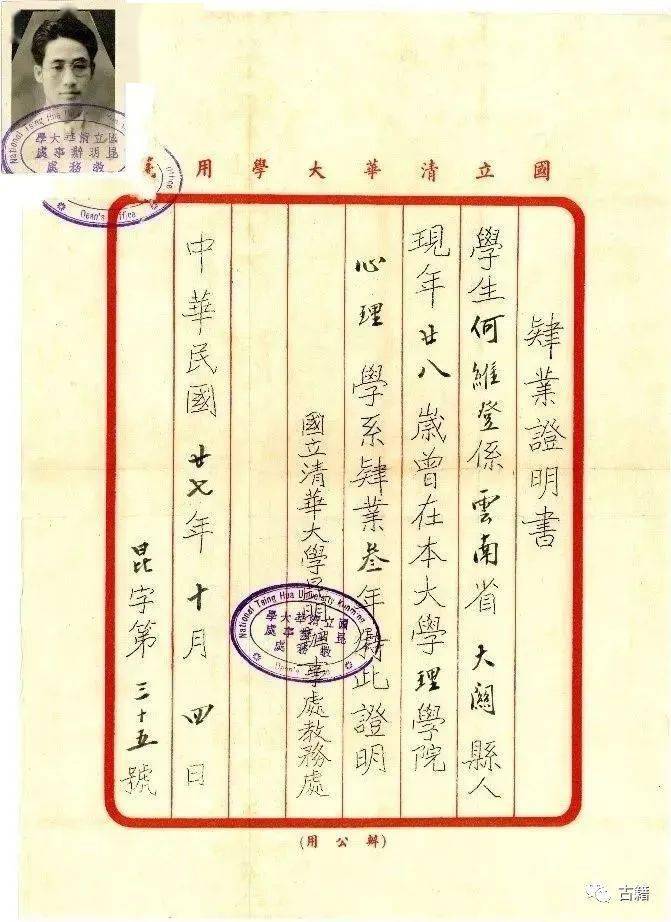 國立清華大學用
肄業證明書
學生何維登係雲南省大關縣人
現年廿八歲曾在本大學理學院
心理學系肄業叁年此證明
國立清華大學昆明辦事處教務處
中華民國廿七年十月四日
昆字第三十五號
(辦公用)
National Tsing Hua Office
國立清華大學
昆明辦事處
教務處
Dean's Office
National Tsing Hua University Kunming
國立清華大學
昆明辦事處
教務處
Dean's
古籍